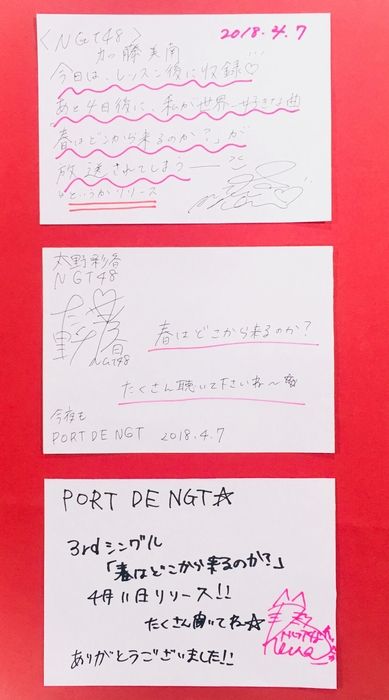 〈NGT48〉
2018.4.7
加藤美南
今日は、レッスン後に収録♡
あと4日後に、私が世界一好きな曲
春はどこから来るのか?」が
放送されてしまうー
というかリリース
太野彩香
NGT48
NGT48
春はどこから来るのか?
たくさん聴いて下さいね〜☆
今夜も
PORT DE NGT 2018.4.7
PORT DE NGT☆
3rdシングル
「春はどこから来るのか?」
4月11日リリース!!
たくさん聞いてね☆
NGT48
Rena
ありがとうございました!!